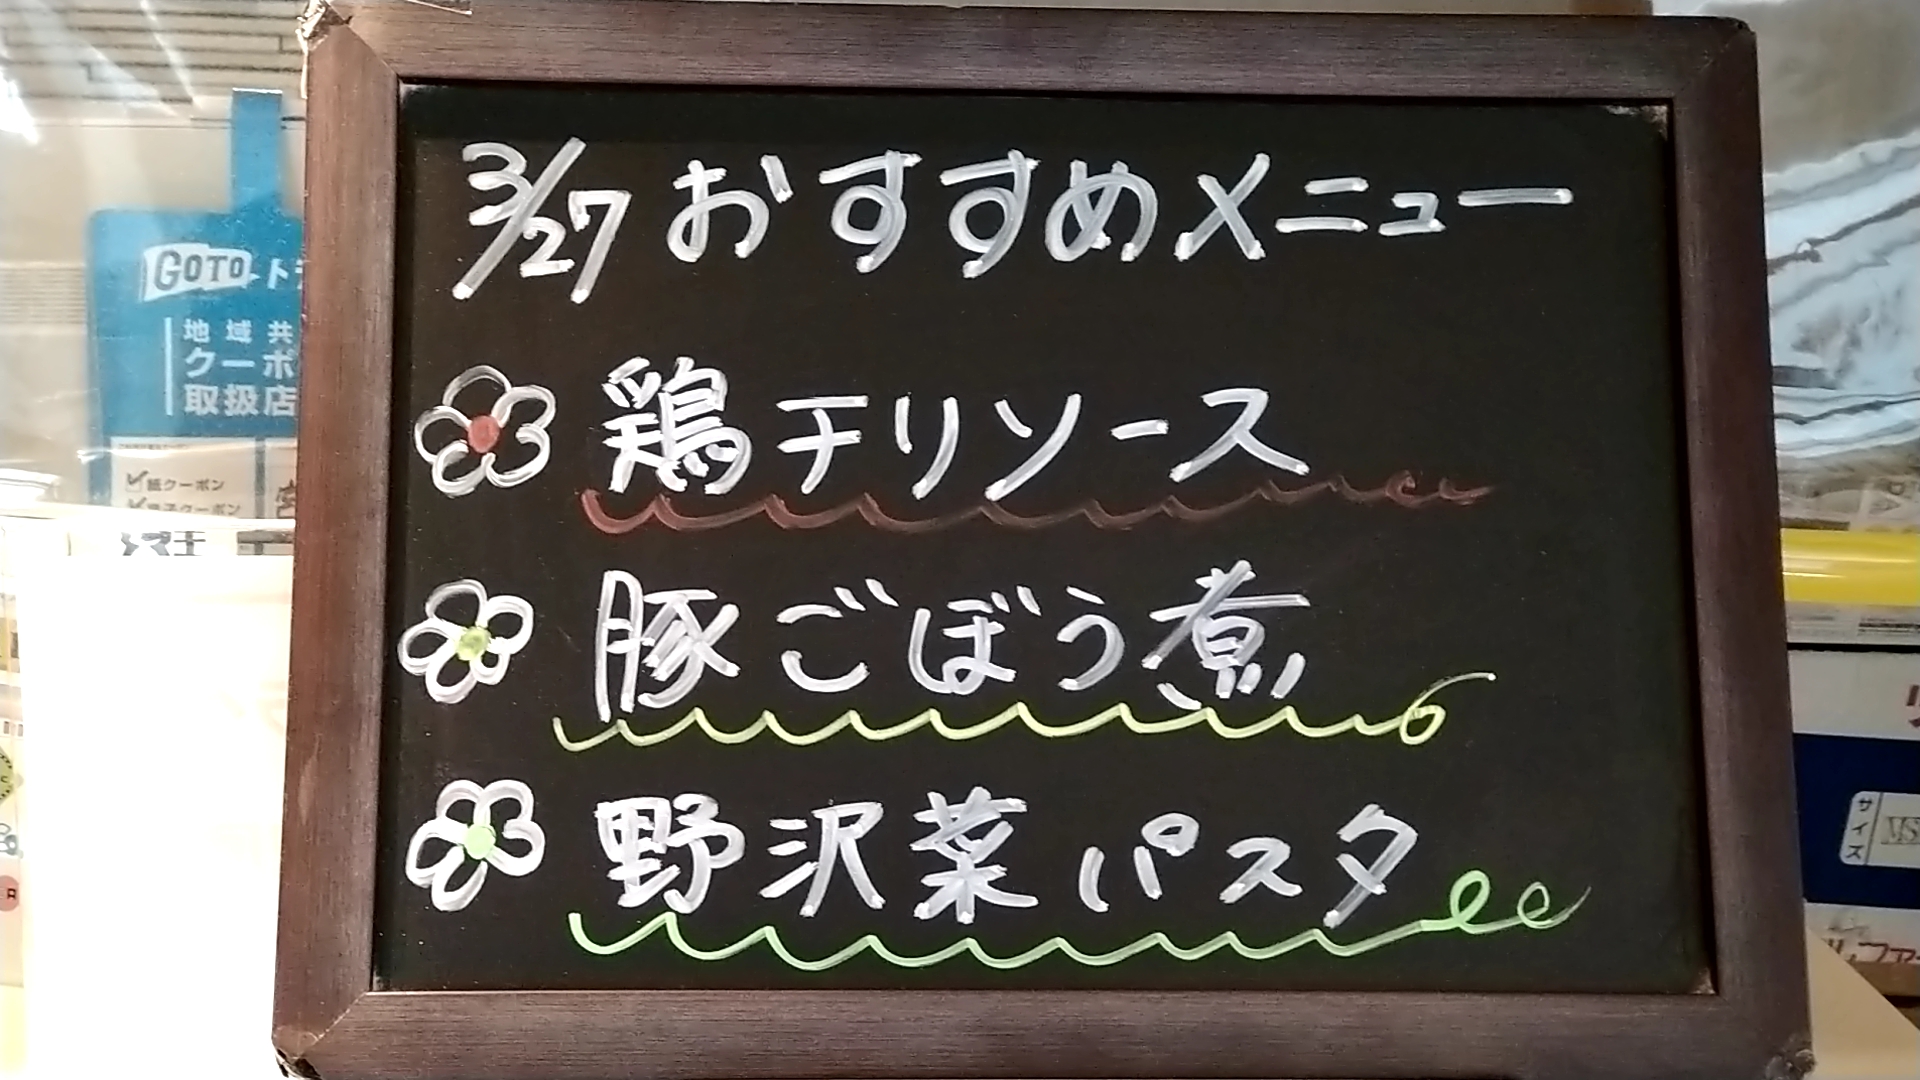 3/27 おすすめメニュー
鶏チリソース
豚ごぼう煮
野沢菜パスタ
GOTOトラ
地域共
クーポ
取扱店
紙クーポン
クーポン
サイズ
MS